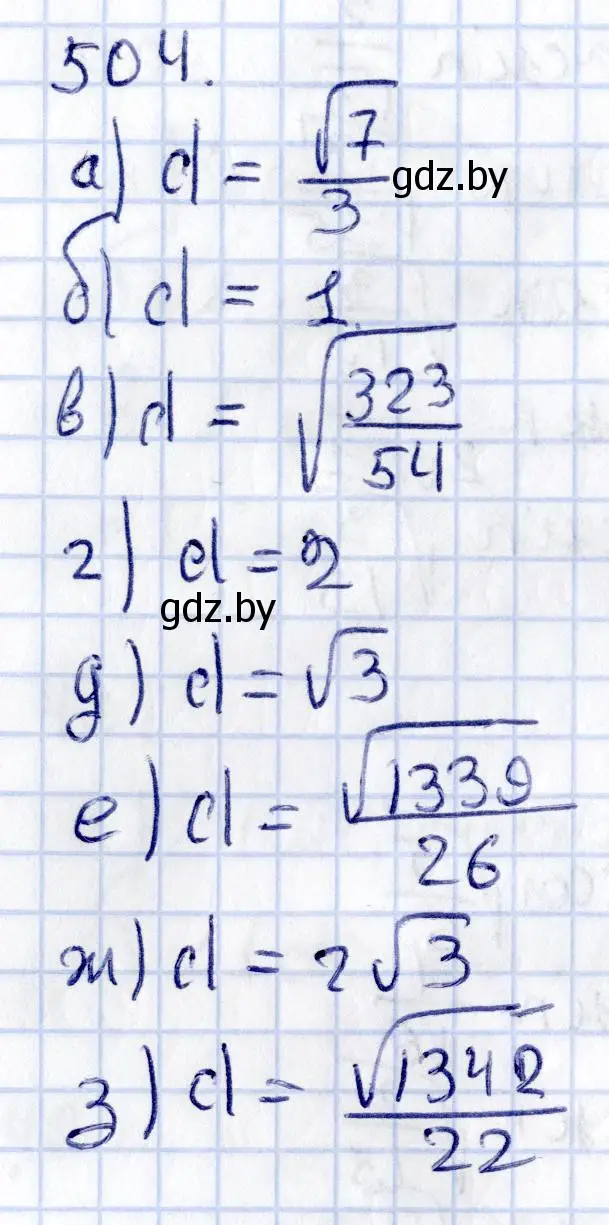 504.
а) d = √7/3
gdz.by
б) d = 1.
в) d = √(323/54)
г) d = 2
gdz.by
д) d = √3
е) d = √1339/26
ж) d = 2√3
з) d = √1342/22